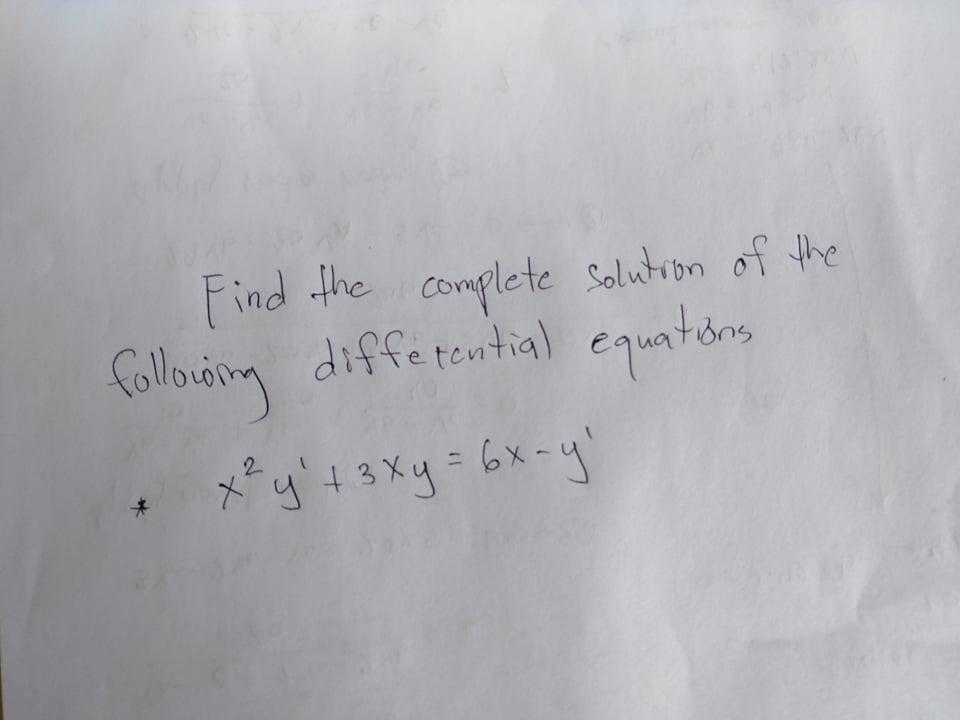 Find the complete solution of the
following differential equations
* x² y' + 3xy = 6x - y'